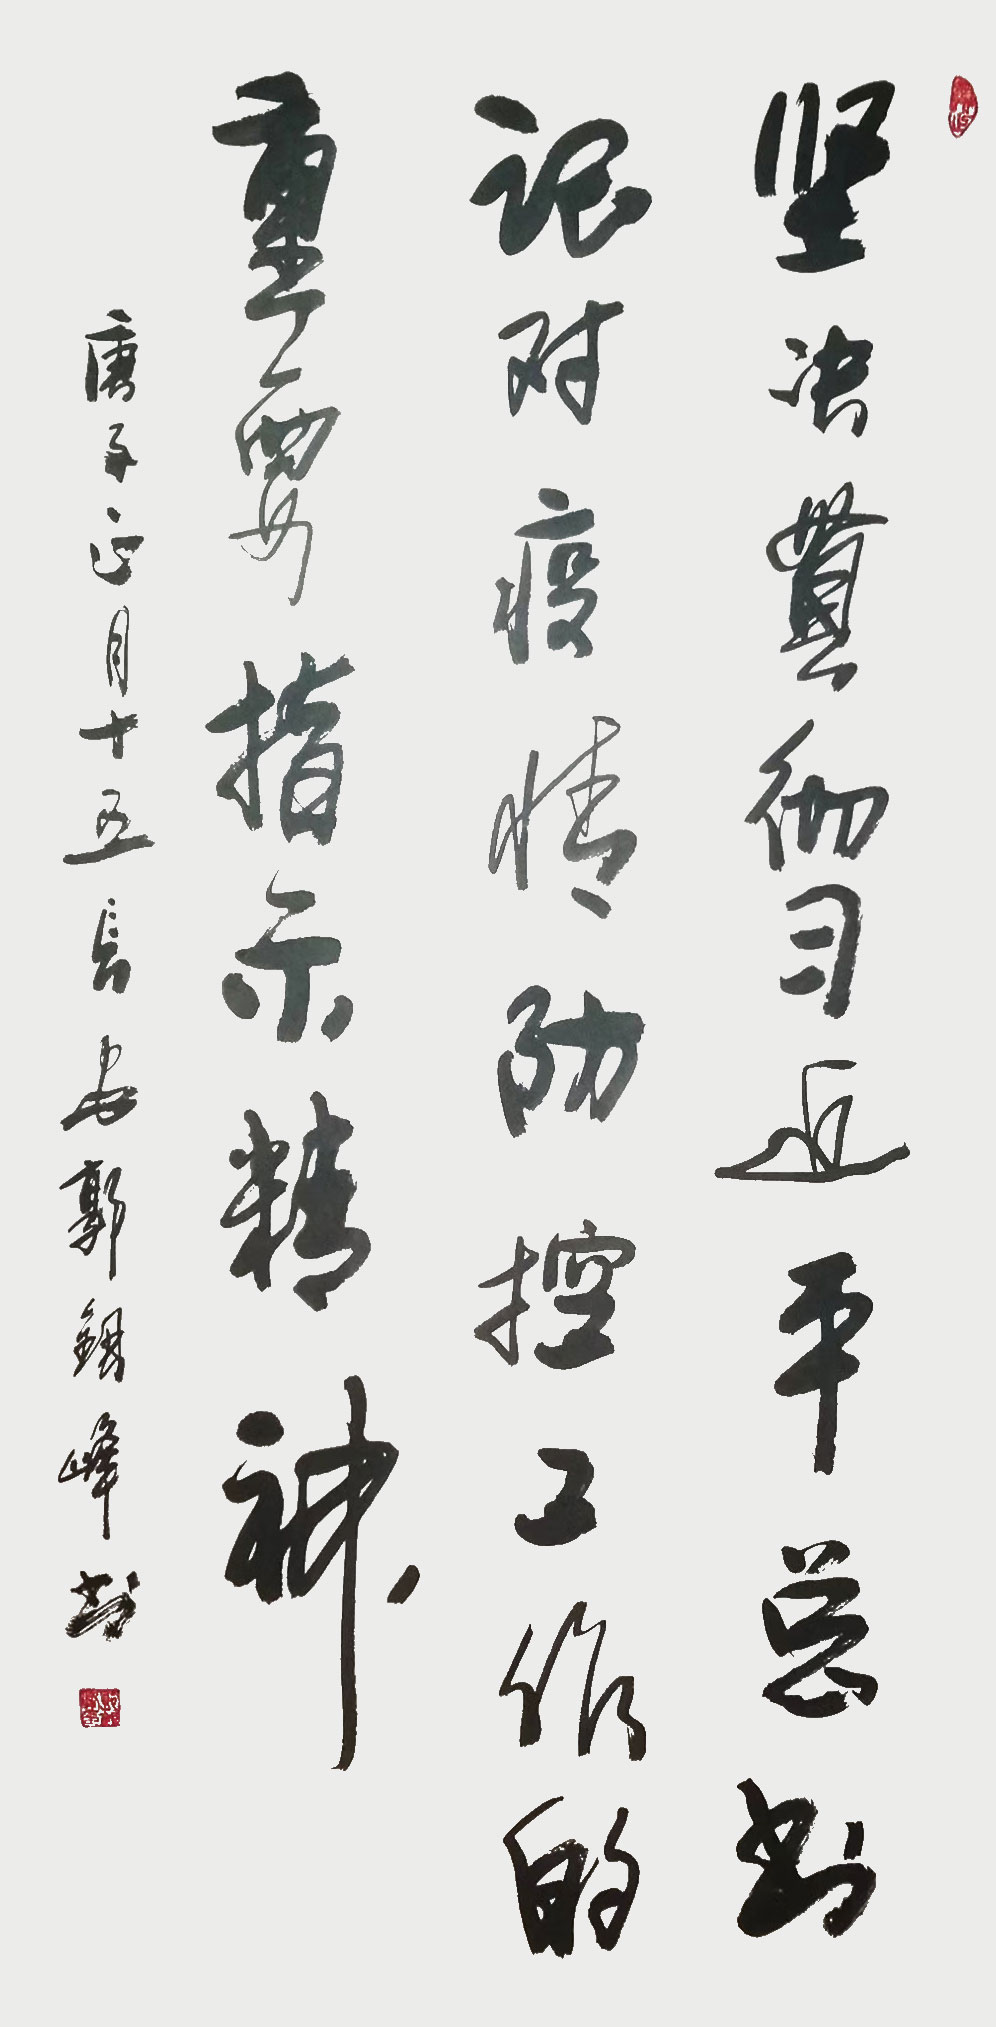 坚决贯彻习近平总书
记对疫情防控工作的
重要指示精神
庚子正月十五长安郭锡峰书